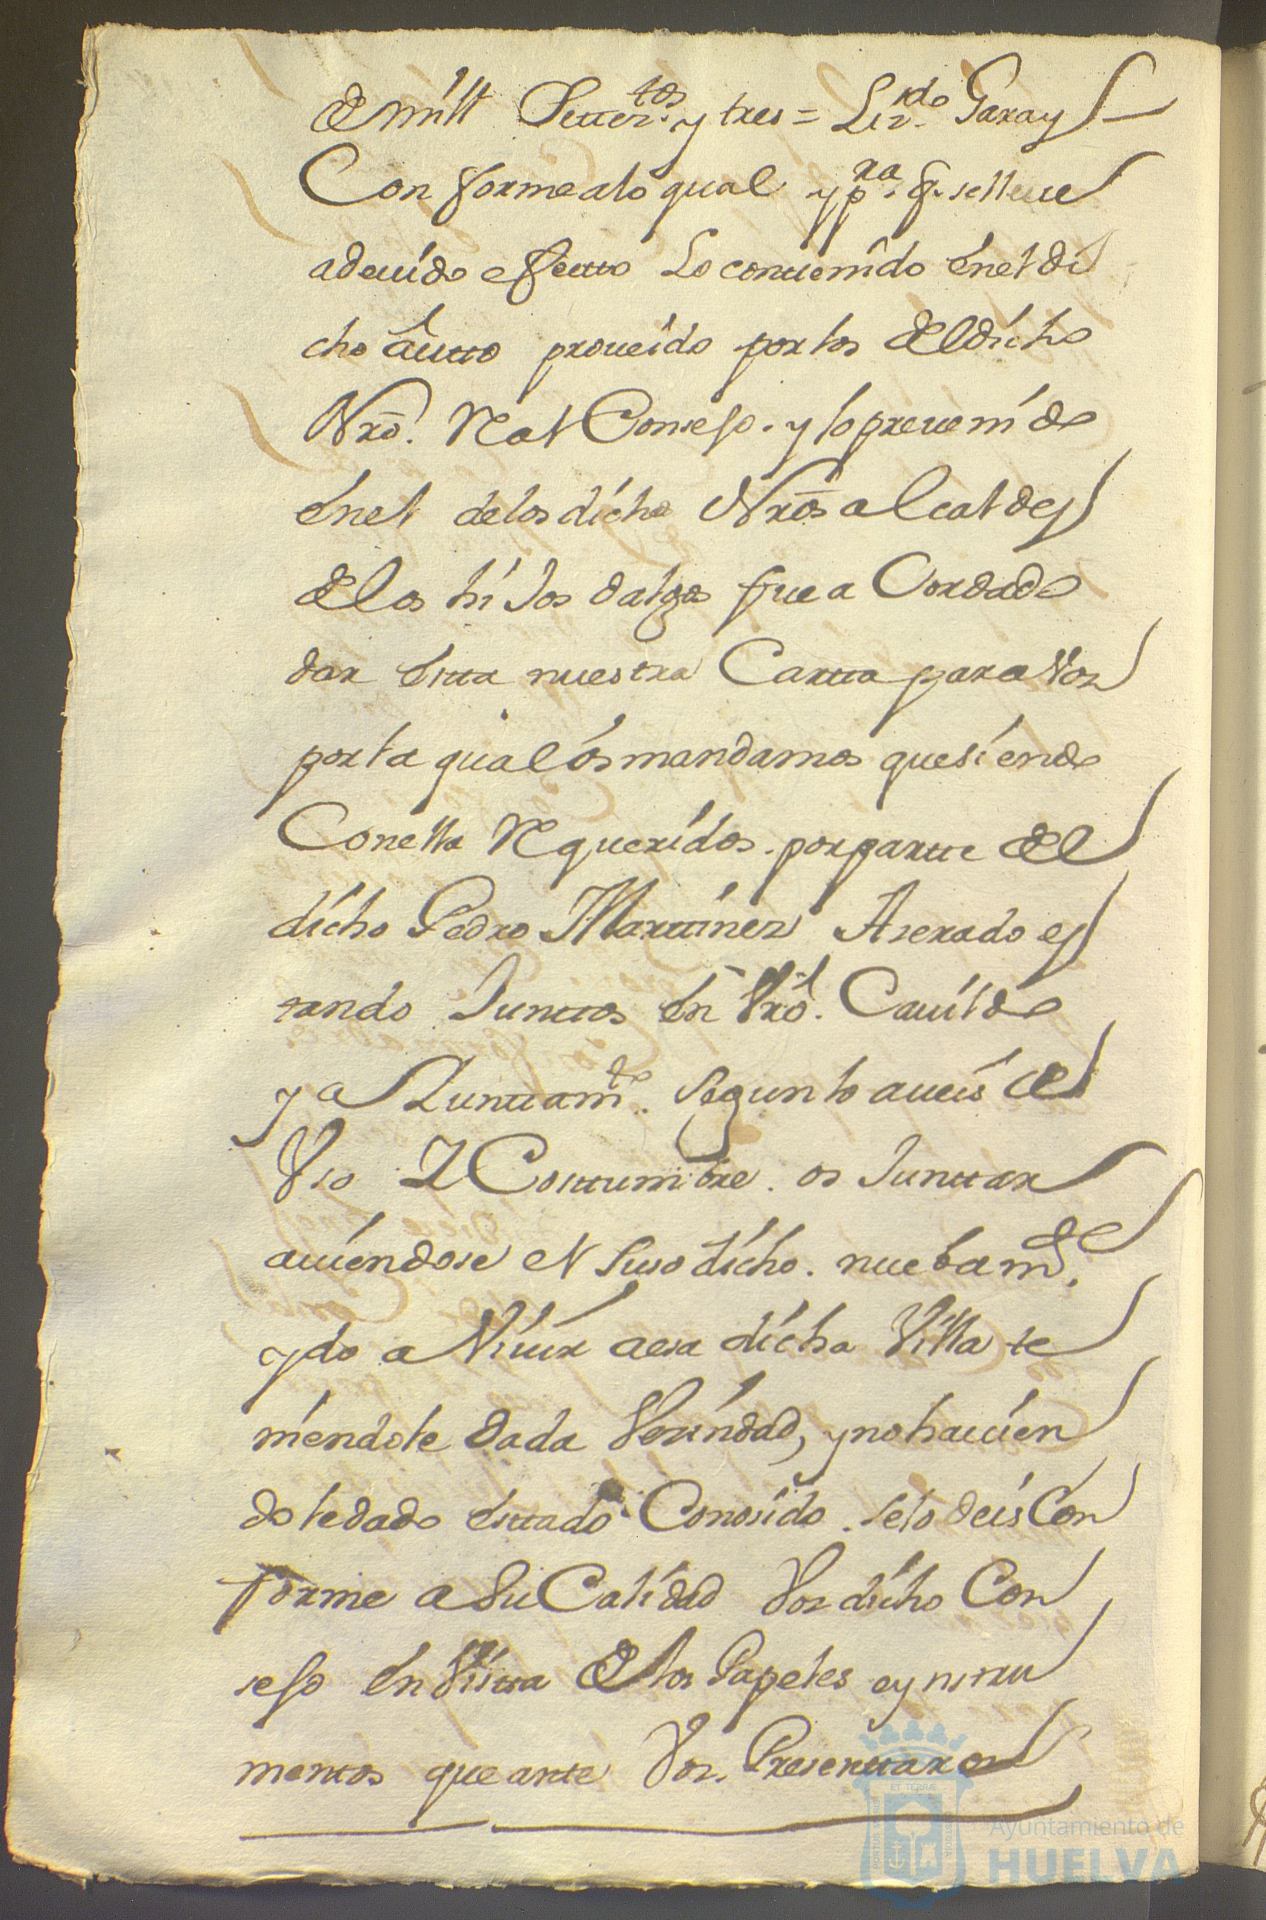 de mill Setteztos. y tres = Lizdo. Garay
Conforme a lo qual y pra. q. se lleve
a deuido efectto Lo conttenido en el di
cho autto proueido por los del dicho
Nro. Real Consejo. y lo preuenido
en el de los dichos Nros alcaldes
de los hijos dalgo fue a Cordado
dar estta nuestra Cartta para Vos
por la qual os mandamos que siendo
Con ella Requeridos. por partte del
dicho Pedro Marttinez Aserado es
tando Junttos en Vro. Cauildo
y a Iunttamto. segun lo aueis de
Vso Y Costtumbre. os Junttar
auiendose el suso dicho. nuebamte.
ydo a Viuir a esa dicha Villa te
niendole dada Vesindad, y no hauien
dole dado esttado Conosido. se lo deis Con
forme a Su Calidad Vos dicho Con
sejo en Vistta de los Papeles e ynstru
mentos que ante Vos. Presenttare
Ayuntamiento de
HUELVA